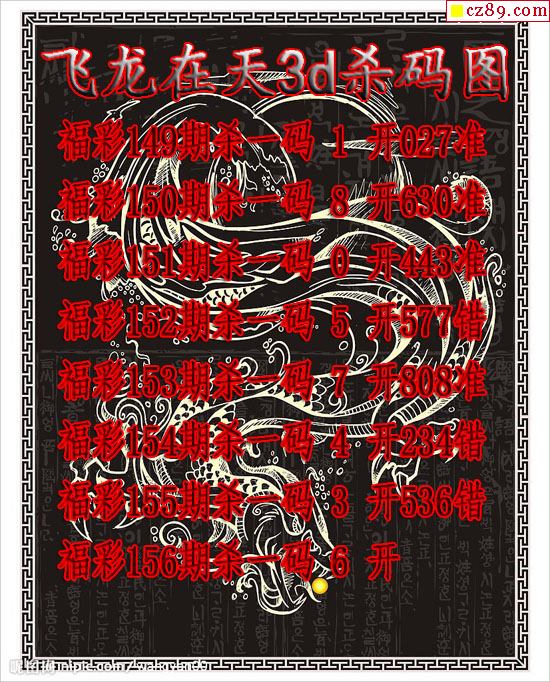 cz89.com
飞龙在天3d杀码图
福彩149期杀一码 1 开027准
福彩150期杀一码 8 开630准
福彩151期杀一码 0 开443准
福彩152期杀一码 5 开577错
福彩153期杀一码 7 开808准
福彩154期杀一码 4 开234错
福彩155期杀一码 3 开536错
福彩156期杀一码 6 开